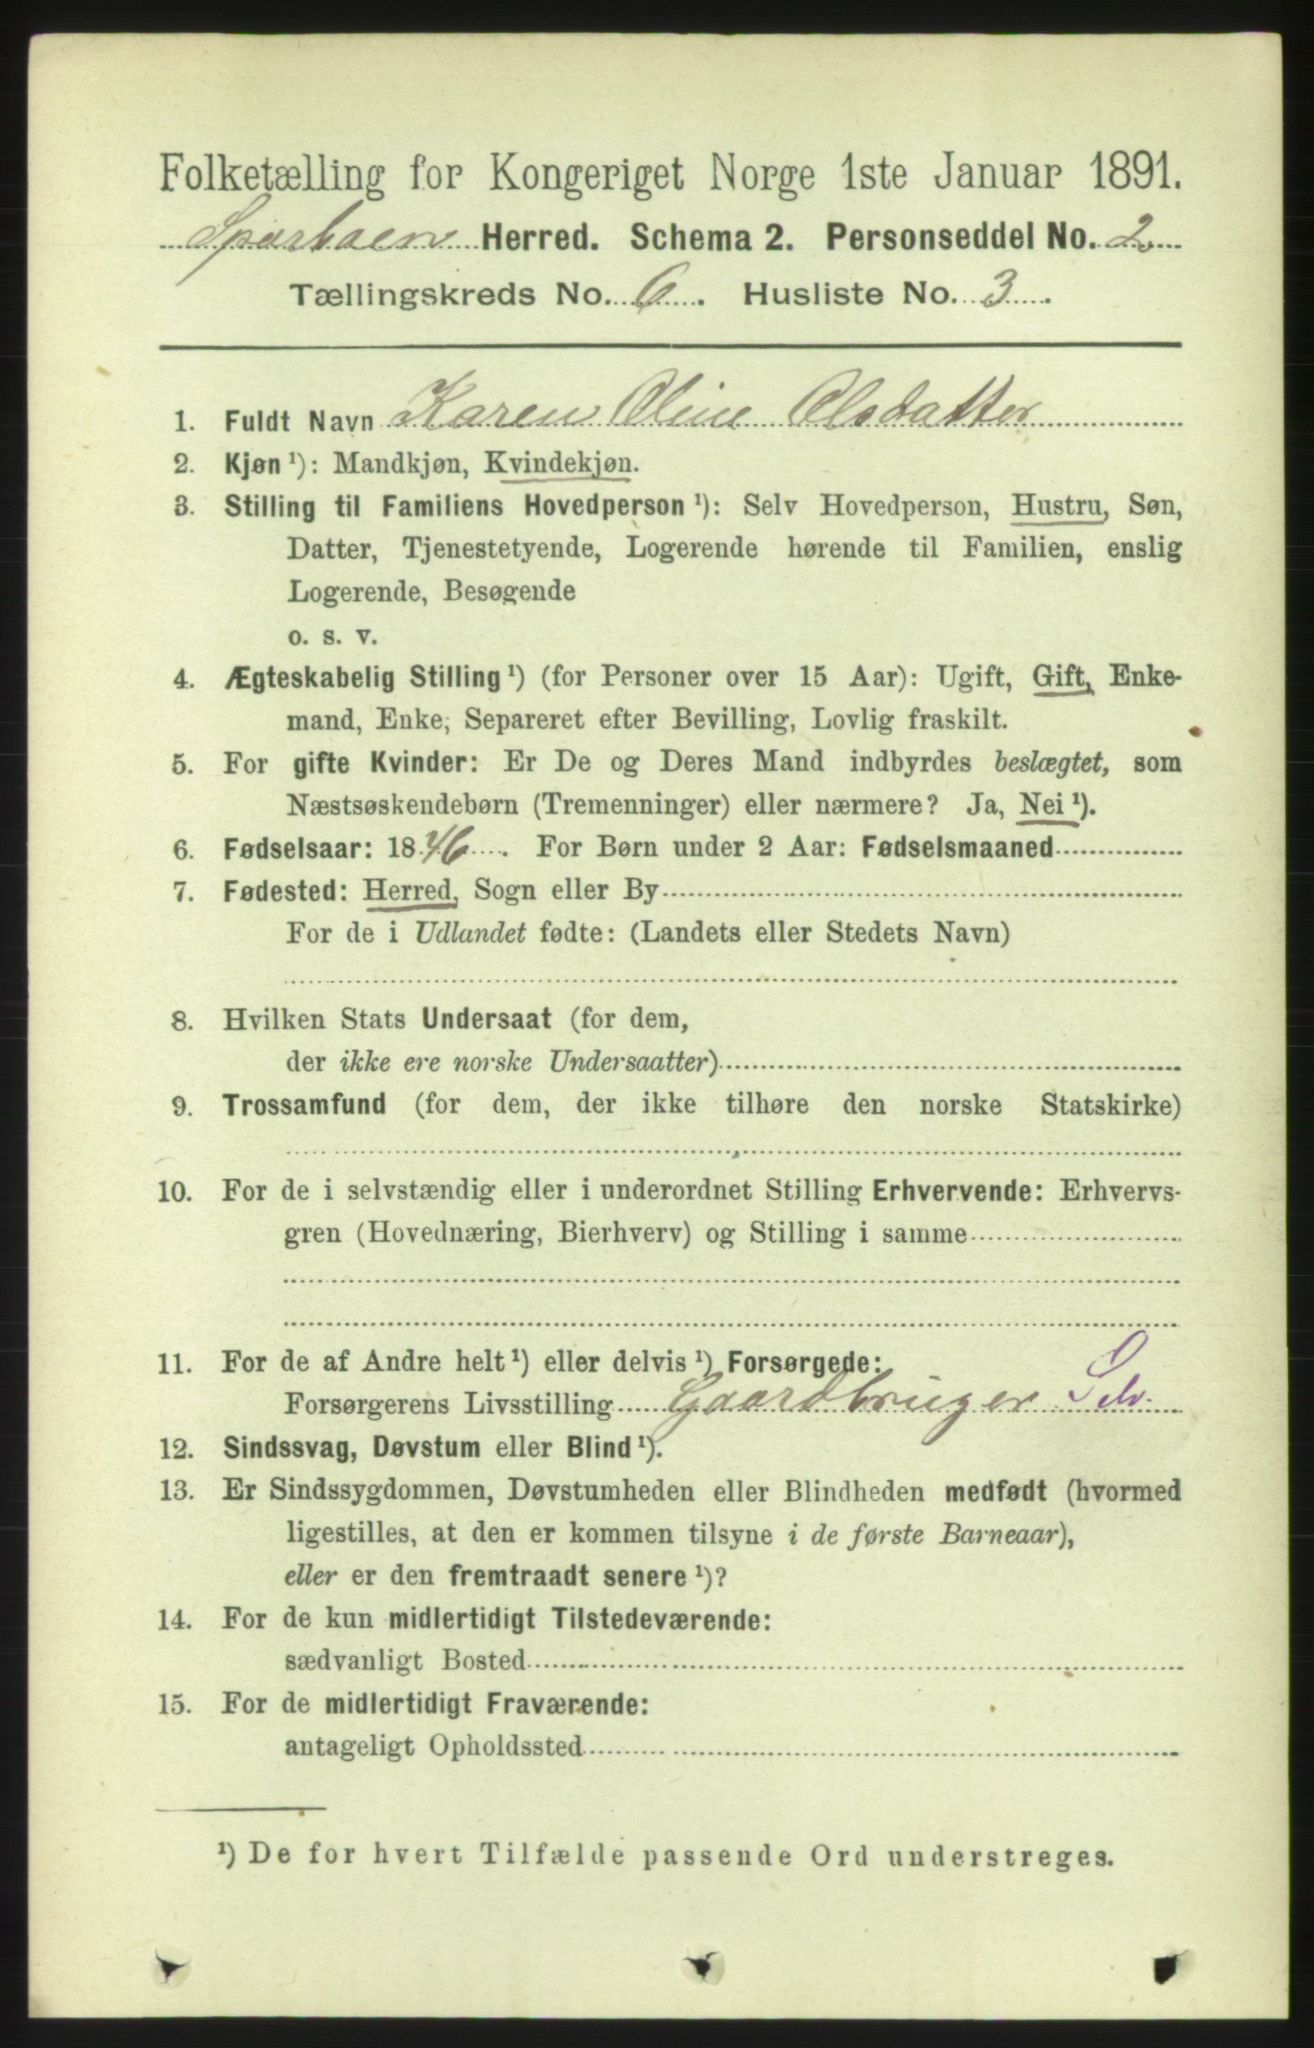 Folketælling for Kongeriget Norge 1ste Januar 1891.
Sparbuen Herred. Schema 2. Personseddel No. 2
Tællingskreds No. 6. Husliste No. 3.
1. Fuldt Navn Karen Oline Olsdatter
2. Kjøn ¹): Mandkjøn, Kvindekjøn.
3. Stilling til Familiens Hovedperson ¹): Selv Hovedperson, Hustru, Søn,
Datter, Tjenestetyende, Logerende hørende til Familien, enslig
Logerende, Besøgende
o. s. v.
4. Ægteskabelig Stilling ¹) (for Personer over 15 Aar): Ugift, Gift, Enke-
mand, Enke, Separeret efter Bevilling, Lovlig fraskilt.
5. For gifte Kvinder: Er De og Deres Mand indbyrdes beslægtet, som
Næstsøskendebørn (Tremenninger) eller nærmere? Ja, Nei ¹).
6. Fødselsaar: 1846. For Børn under 2 Aar: Fødselsmaaned
7. Fødested: Herred, Sogn eller By
For de i Udlandet fødte: (Landets eller Stedets Navn)
8. Hvilken Stats Undersaat (for dem,
der ikke ere norske Undersaatter)
9. Trossamfund (for dem, der ikke tilhøre den norske Statskirke)
10. For de i selvstændig eller i underordnet Stilling Erhvervende: Erhvervs-
gren (Hovednæring, Bierhverv) og Stilling i samme
11. For de af Andre helt ¹) eller delvis ¹) Forsørgede:
Forsørgerens Livsstilling Gaardbruger Selv.
12. Sindssvag, Døvstum eller Blind ¹).
13. Er Sindssygdommen, Døvstumheden eller Blindheden medfødt (hvormed
ligestilles, at den er kommen tilsyne i de første Barneaar),
eller er den fremtraadt senere ¹)?
14. For de kun midlertidigt Tilstedeværende:
sædvanligt Bosted
15. For de midlertidigt Fraværende:
antageligt Opholdssted
¹) De for hvert Tilfælde passende Ord understreges.